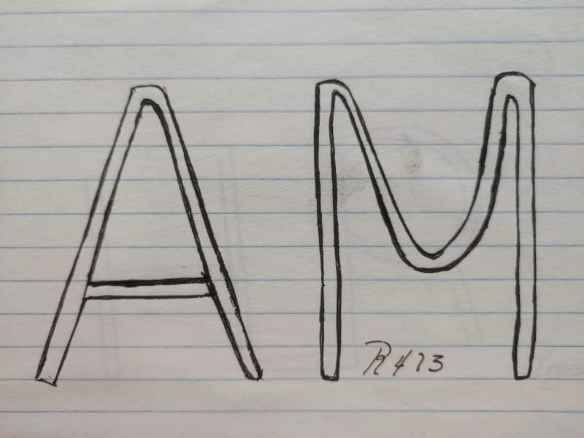 AM
R473